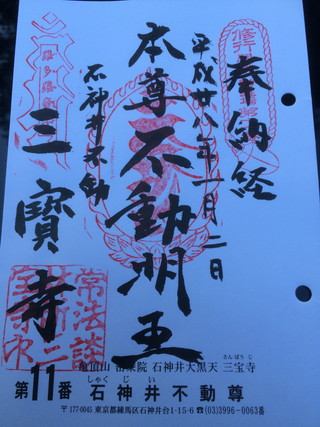 奉納経
平成廿八年一月二日
本尊不動明王
石神井不動
三寳寺
亀頂山 密乗院 石神井大黒天 三宝寺
さんぽうじ
第11番 石神井不動尊
しゃくじい
〒177-0045 東京都練馬区石神井台1-15-6 ☎(03)3996-0063番